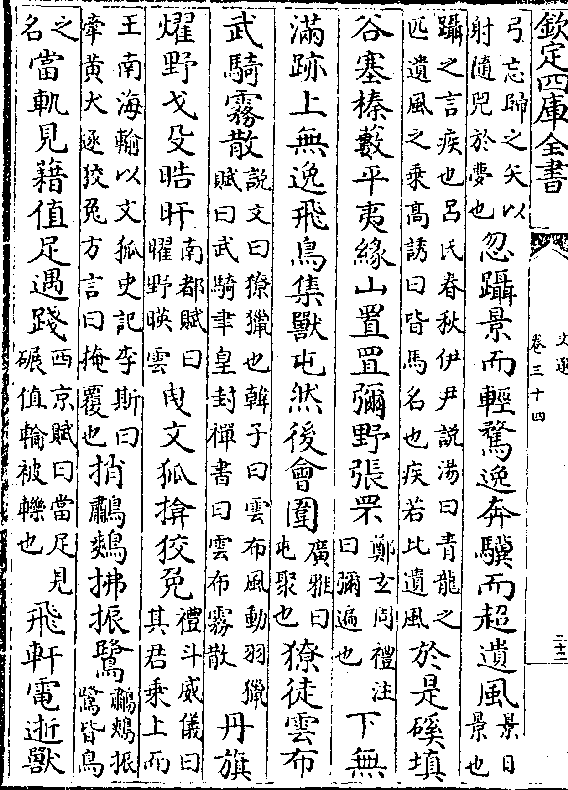 欽定四庫全書
文選
卷三十四
弓忘歸之矢以
射隨兕於夢也
忽躡景而輕騖逸奔驥而超遺風
景日
景也
躡之言疾也吕氏春秋伊尹説湯曰青龍之
匹遺風之乗髙誘曰皆馬名也疾若比遺風
於是磎填
谷塞榛藪平夷緣山置罝彌野張罘
鄭玄周禮注
曰彌遍也
下無
滿跡上無逸飛鳥集獸屯然後會圍
廣雅曰
屯聚也
獠徒雲布
武騎霧散
説文曰獠獵也韓子曰雲布風動羽獵
賦曰武騎聿皇封禪書曰雲布霧散
丹旗
燿野戈殳晧旰
南都賦曰
曜野暎雲
曳文狐揜狡兔
禮斗威儀曰
其君乗上而
王南海輸以文狐史記李斯曰
牽黄犬逐狡兔方言曰掩覆也
捎鷫鷞拂振鷺
鷫鷞振
鷺皆鳥
之
名
當軌見藉值足遇踐
西京賦曰當足見
碾值輪被轢也
飛軒電逝獸